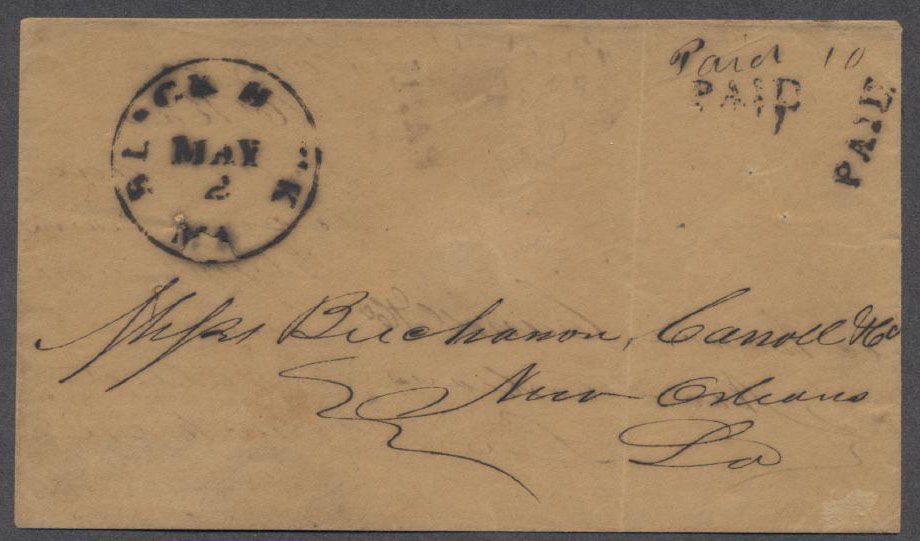 Paid 10
PAID
PAID
BLACK HAWK
MAY
2
Messrs Buchanan, Carroll & Co
New Orleans
La